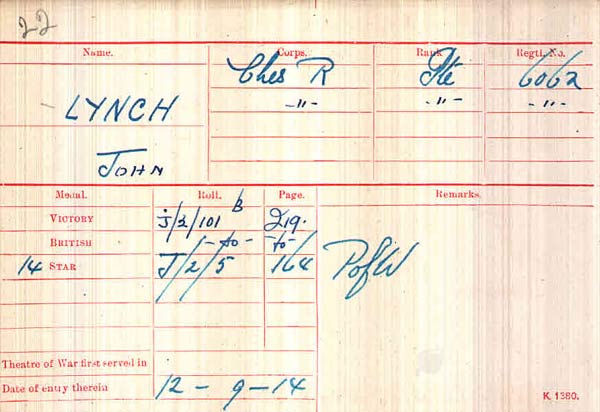 22
Name. Corps. Rank Regtl. No.
Ches R Pte 6062
LYNCH -"- -"- -"-
JOHN
Medal. Roll. Page. Remarks.
VICTORY J/2/101 B 219.
BRITISH -do- -do-
14 STAR J/2/5 164 P of W
Theatre of War first served in
Date of entry therein 12 - 9 - 14
K. 1380.